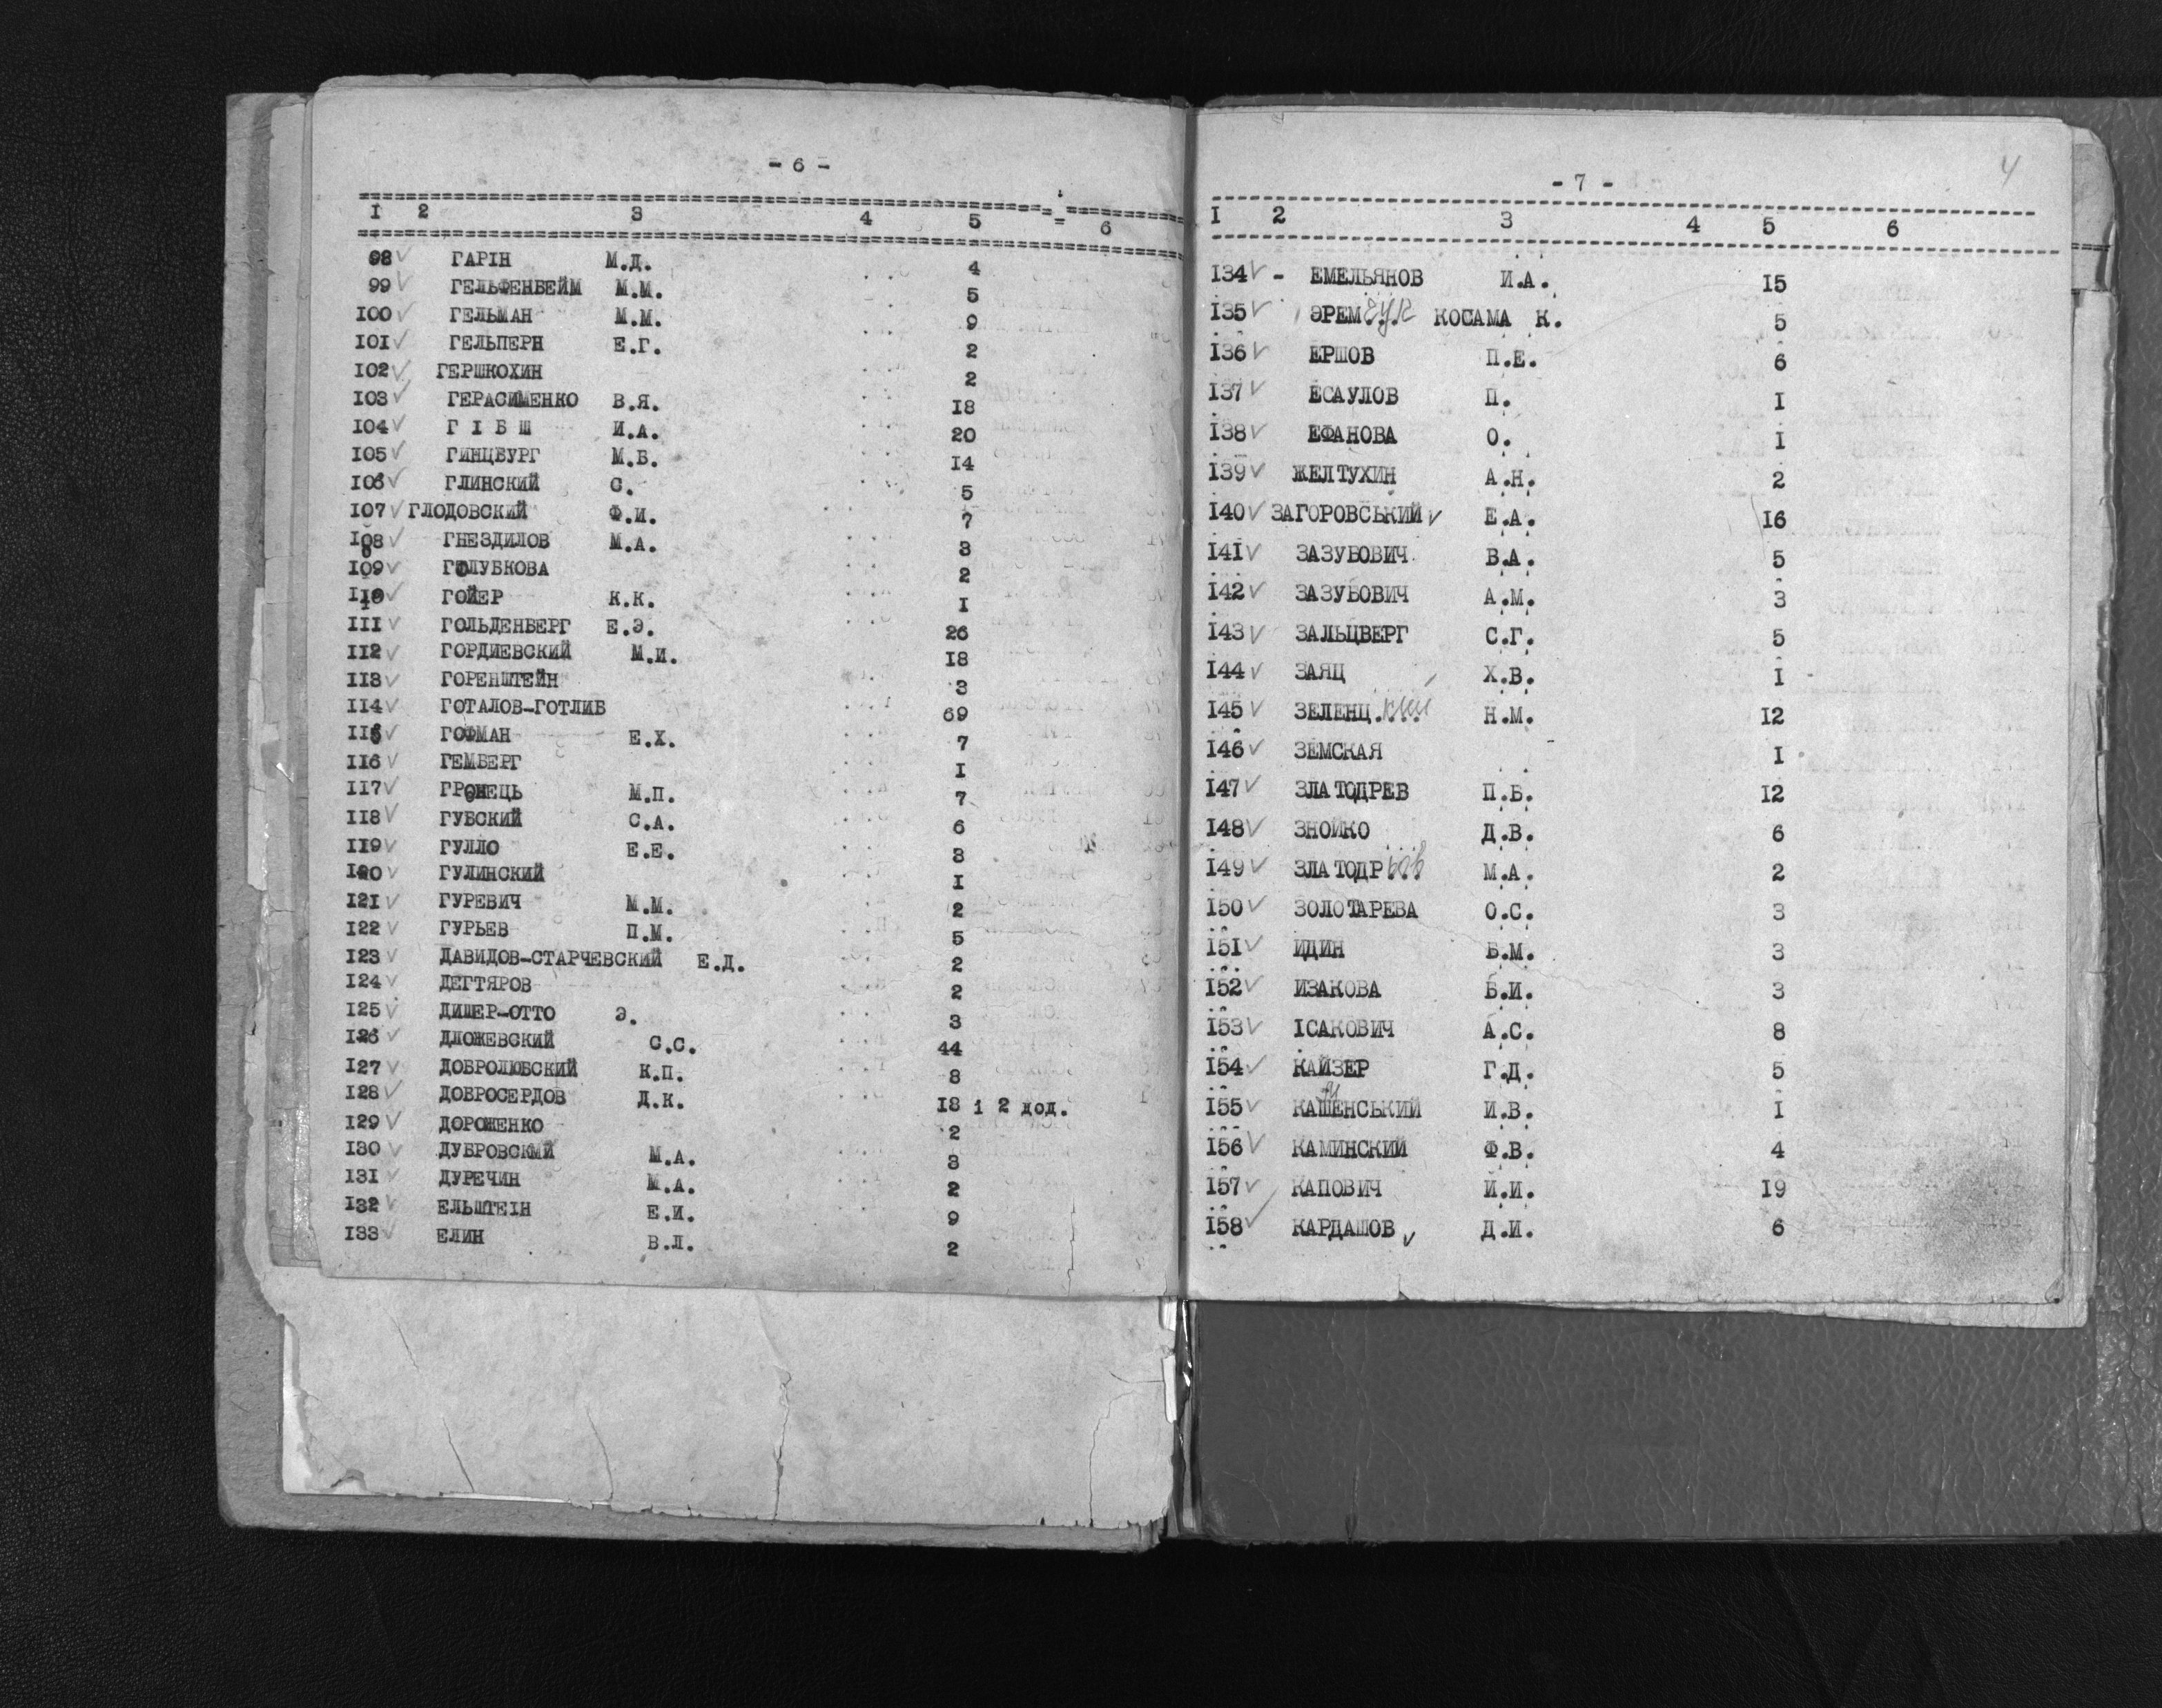 - 6 -
I 2 3 4 5 6
98 ГАРІН М.Д. 4
99 ГЕЛЬФЕНБЕЙМ М.М. 5
100 ГЕЛЬМАН М.М. 9
101 ГЕЛЬПЕРН Е.Г. 2
102 ГЕРШКОХИН 2
103 ГЕРАСИМЕНКО В.Я. 18
104 Г І Б Ш И.А. 20
105 ГИНЦБУРГ М.Б. 14
106 ГЛИНСКИЙ С. 5
107 ГЛОДОВСКИЙ Ф.И. 7
108 ГНЕЗДИЛОВ М.А. 3
109 ГОЛУБКОВА 2
110 ГОЙЕР К.К. I
III ГОЛЬДЕНБЕРГ Е.Э. 26
112 ГОРДИЕВСКИЙ М.И. 18
113 ГОРЕНШТЕЙН 3
114 ГОТАЛОВ-ГОТЛИБ 69
115 ГОФМАН Е.Х. 7
116 ГЕМБЕРГ I
117 ГРОНЕЦЬ М.П. 7
118 ГУБСКИЙ С.А. 6
119 ГУЛЛО Е.Е. 3
120 ГУЛИНСКИЙ I
121 ГУРЕВИЧ М.М. 2
122 ГУРЬЕВ П.М. 5
123 ДАВИДОВ-СТАРЧЕВСКИЙ Е.Д. 2
124 ДЕГТЯРОВ 2
125 ДИШЕР-ОТТО Э. 3
126 ДЛОЖЕВСКИЙ С.С. 44
127 ДОБРОЛЮБСКИЙ К.П. 8
128 ДОБРОСЕРДОВ Д.К. 18 і 2 дод.
129 ДОРОЖЕНКО 2
130 ДУБРОВСКИЙ М.А. 3
131 ДУРЕЧИН М.А. 2
132 ЕЛЬШТЕІН Е.И. 9
133 ЕЛИН В.Л. 2
4
- 7 -
I 2 3 4 5 6
134 - ЕМЕЛЬЯНОВ И.А. 15
135 ЭРЕМЧУК КОСАМА К. 5
136 ЕРШОВ П.Е. 6
137 ЕСАУЛОВ П. I
138 ЕФАНОВА О. I
139 ЖЕЛТУХИН А.Н. 2
140 ЗАГОРОВСЬКИЙ Е.А. 16
141 ЗАЗУБОВИЧ В.А. 5
142 ЗАЗУБОВИЧ А.М. 3
143 ЗАЛЬЦБЕРГ С.Г. 5
144 ЗАЯЦ Х.В. I
145 ЗЕЛЕНЦкий Н.М. 12
146 ЗЕМСКАЯ I
147 ЗЛАТОДРЕВ П.Б. 12
148 ЗНОЙКО Д.В. 6
149 ЗЛАТОДР М.А. 2
150 ЗОЛОТАРЕВА О.С. 3
151 ИДИН Б.М. 3
152 ИЗАКОВА Б.И. 3
153 ІСАКОВИЧ А.С. 8
154 КАЙЗЕР Г.Д. 5
155 КАШЕНСЬКИЙ И.В. I
156 КАМИНСКИЙ Ф.В. 4
157 КАПОВИЧ Й.И. 19
158 КАРДАШОВ Д.И. 6